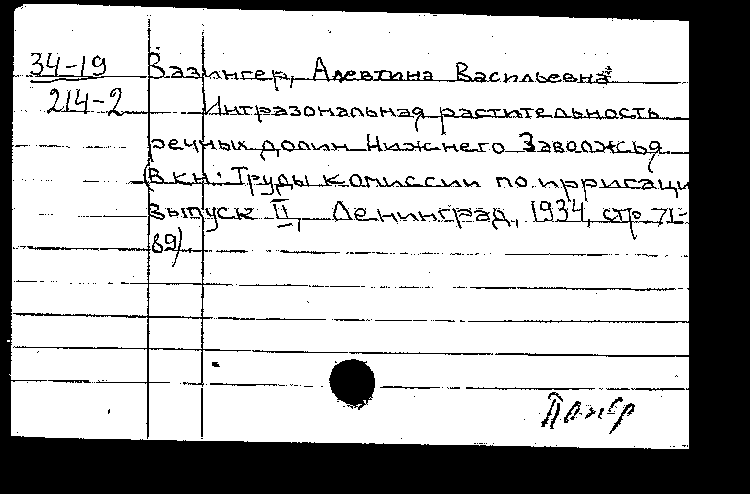 34-19 Вазингер, Алевтина Васильевна
214-2 Интразональная растительность
речных долин Нижнего Заволжья
(В кн.: Труды комиссии по ирригаци
выпуск II, Ленинград, 1934, стр. 71-
89).